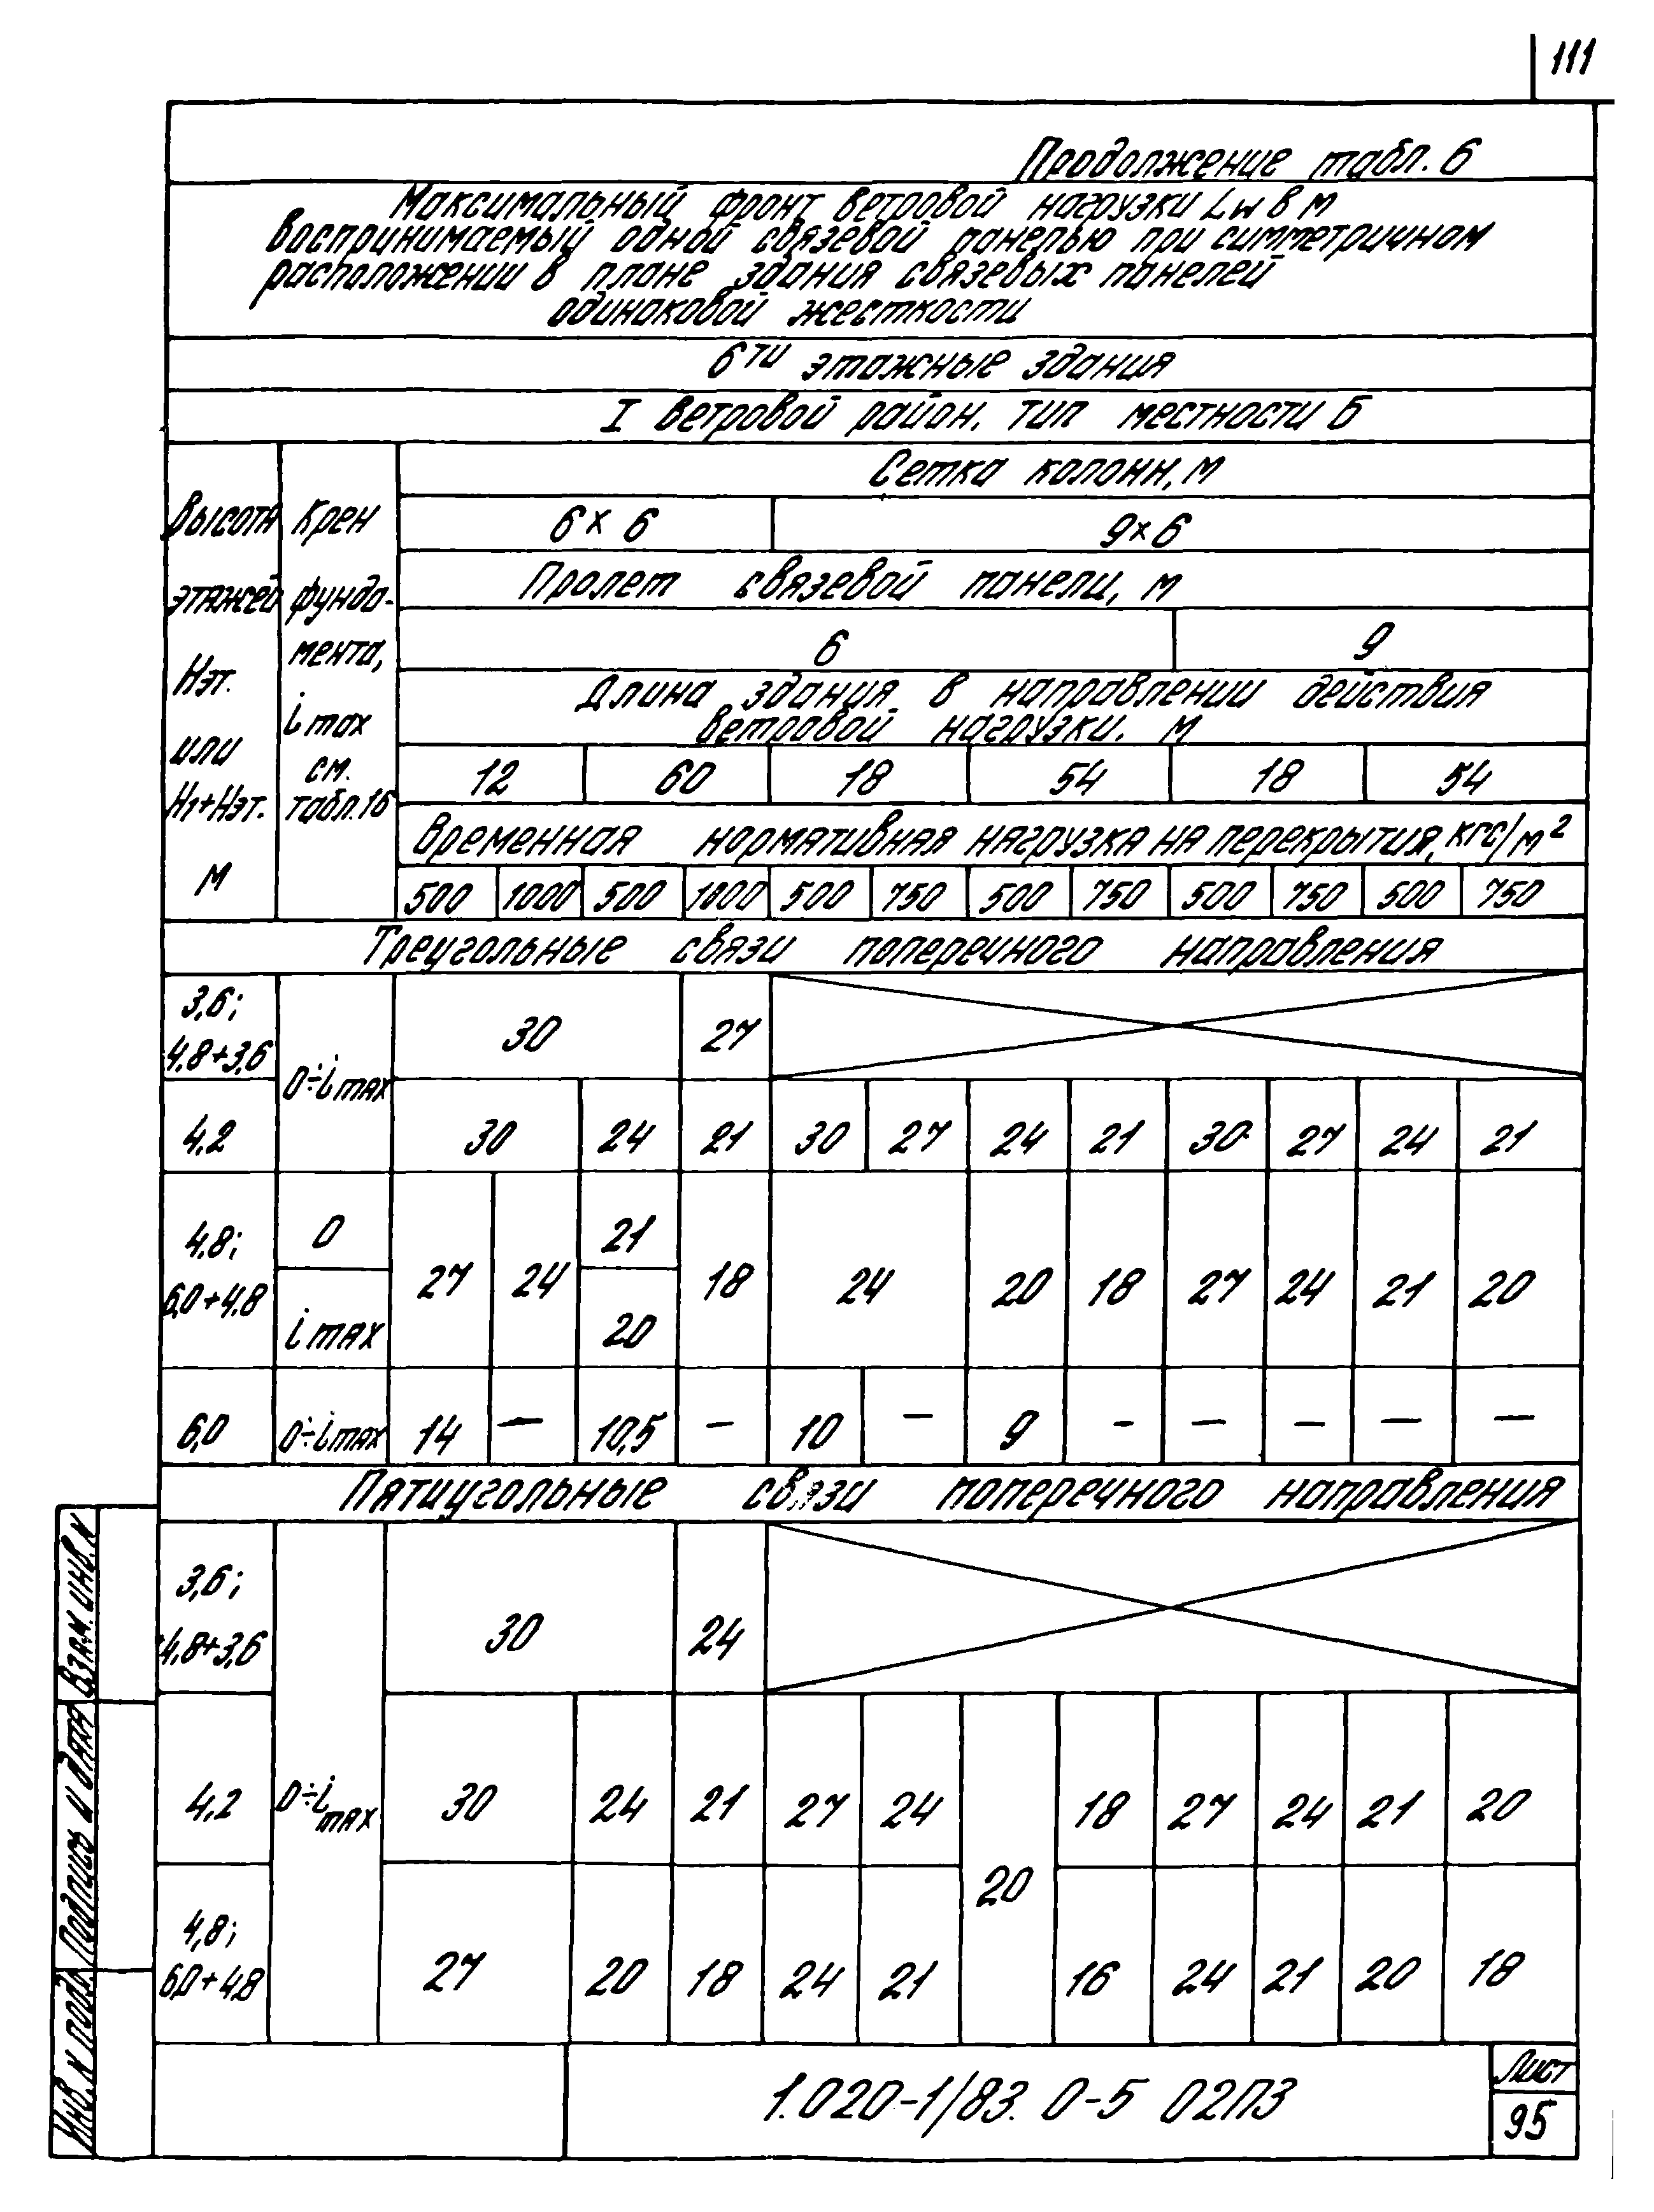 111
Продолжение табл. 6
Максимальный фронт ветровой нагрузки Lw в м
воспринимаемый одной связевой панелью при симметричном
расположении в плане здания связевых панелей
одинаковой жесткости
6ти этажные здания
I ветровой район, тип местности Б
Высота этажей Нэт. или Н1+Нэт. м
Крен фундамента, i max см. табл. 16
Сетка колонн, м
6×6 9×6
Пролет связевой панели, м
6 9
Длина здания в направлении действия
ветровой нагрузки. м
12 60 18 54 18 54
Временная нормативная нагрузка на перекрытия, кгс/м²
500 1000 500 1000 500 750 500 750 500 750 500 750
Треугольные связи поперечного направления
3,6;
4,8+3,6 0÷i max 30 27
4,2 30 24 21 30 27 24 21 30 27 24 21
4,8; 0 21
6,0+4,8 27 24 18 24 20 18 27 24 21 20
i max 20
6,0 0÷i max 14 — 10,5 — 10 — 9 — — — — —
Пятиугольные связи поперечного направления
3,6;
4,8+3,6 30 24
4,2 0÷i max 30 24 21 27 24 20 18 27 24 21 20
4,8;
6,0+4,8 27 20 18 24 21 16 24 21 20 18
Взам. инв. N
Подпись и дата
Инв. N подл.
1.020-1/83. 0-5 02ПЗ
Лист
95